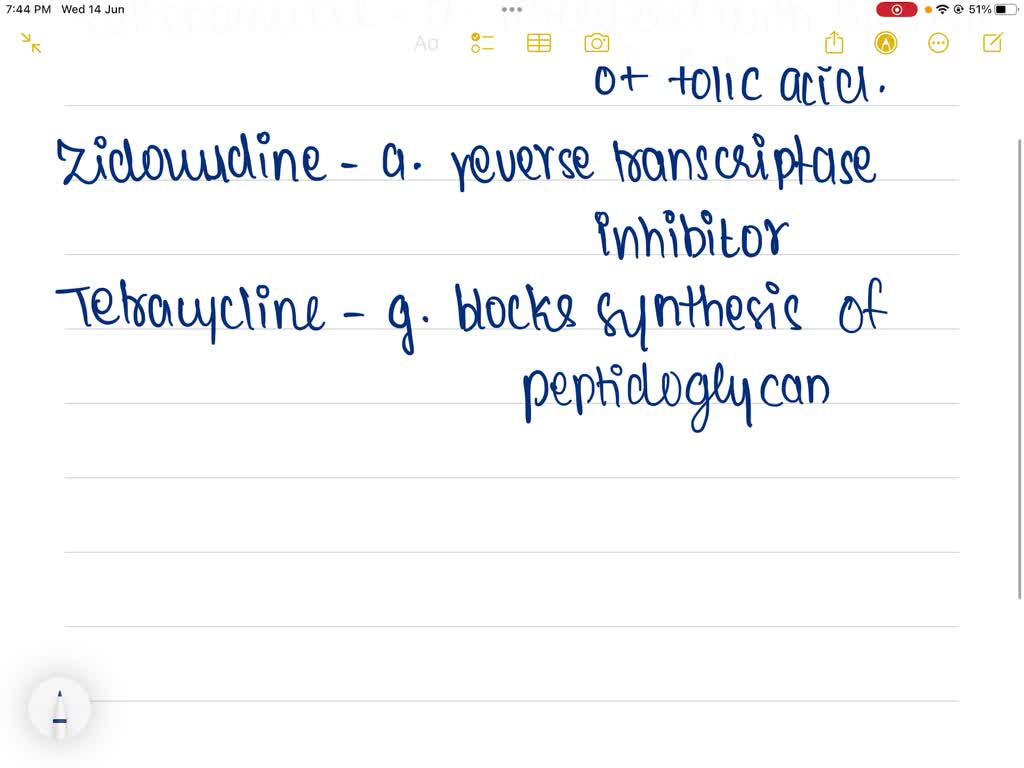 7:44 PM Wed 14 Jun
51%
Aa
of folic acid.
Zidovudine - a. reverse transcriptase
inhibitor
Tetracycline - g. blocks synthesis of
peptidoglycan